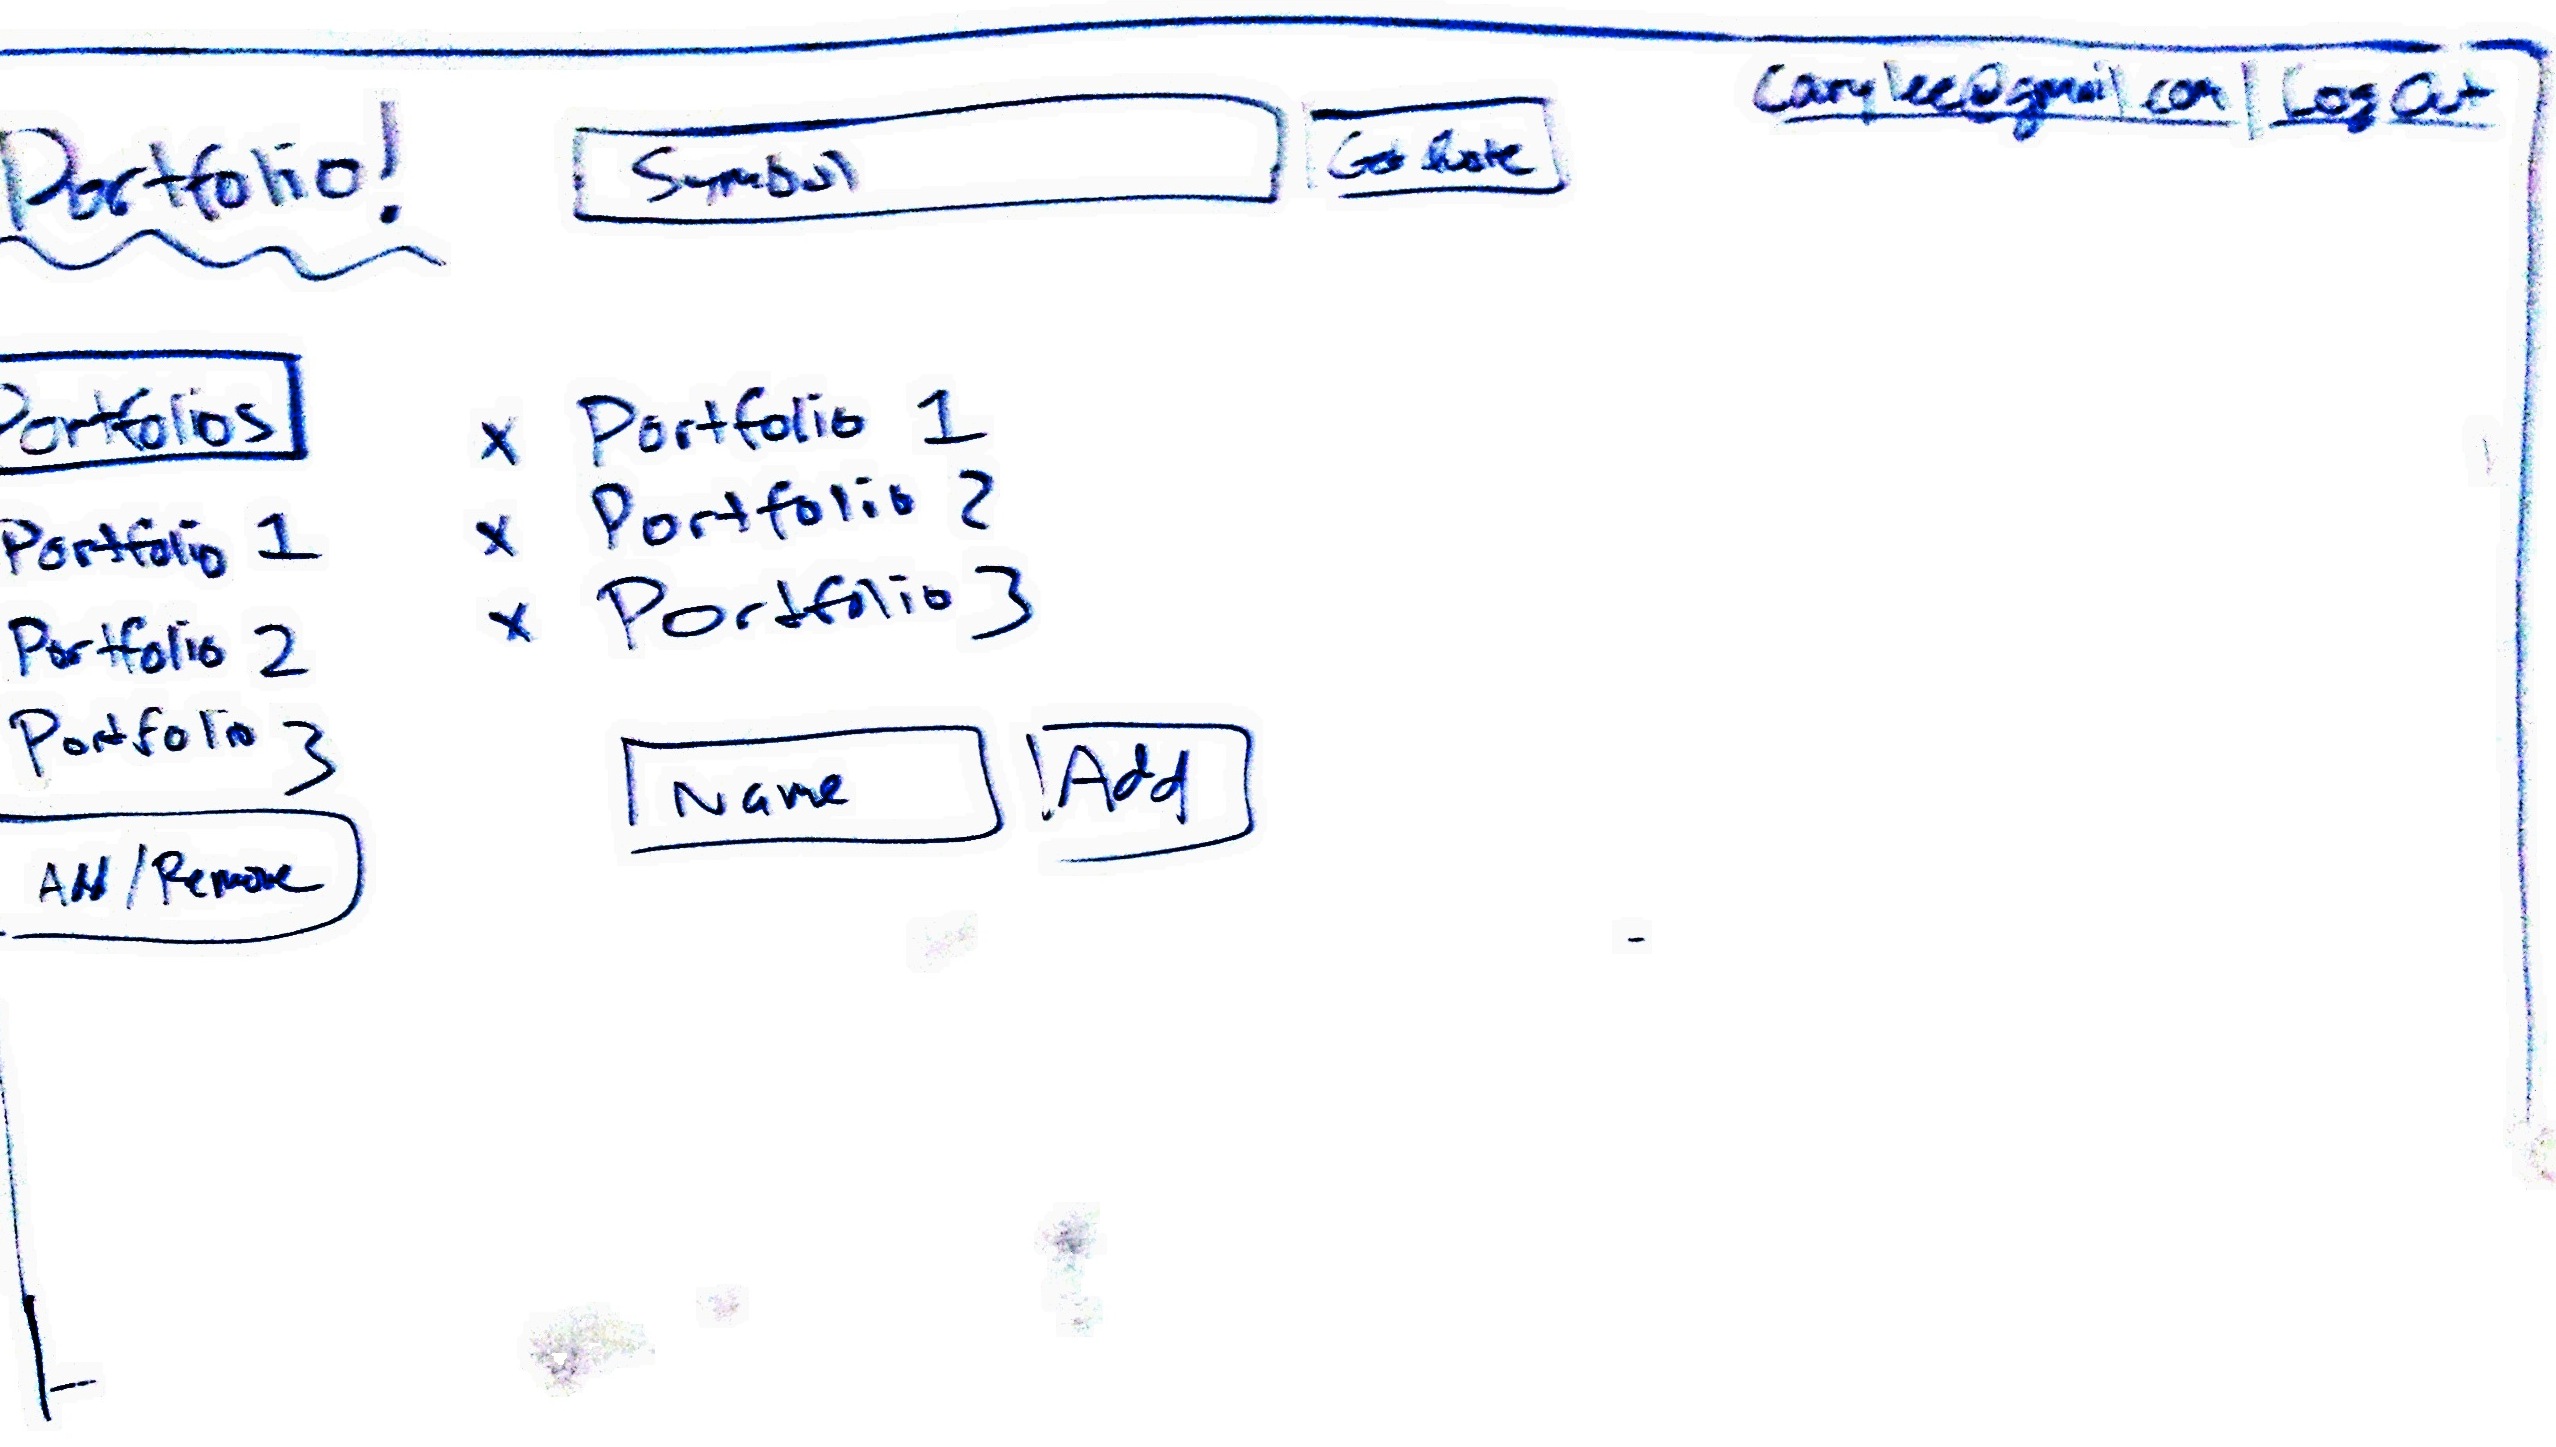 Portfolio!
Symbol
Get Quote
carylee@gmail.com | Log Out
Portfolios
Portfolio 1
Portfolio 2
Portfolio 3
Add/Remove
x Portfolio 1
x Portfolio 2
x Portfolio 3
Name
Add